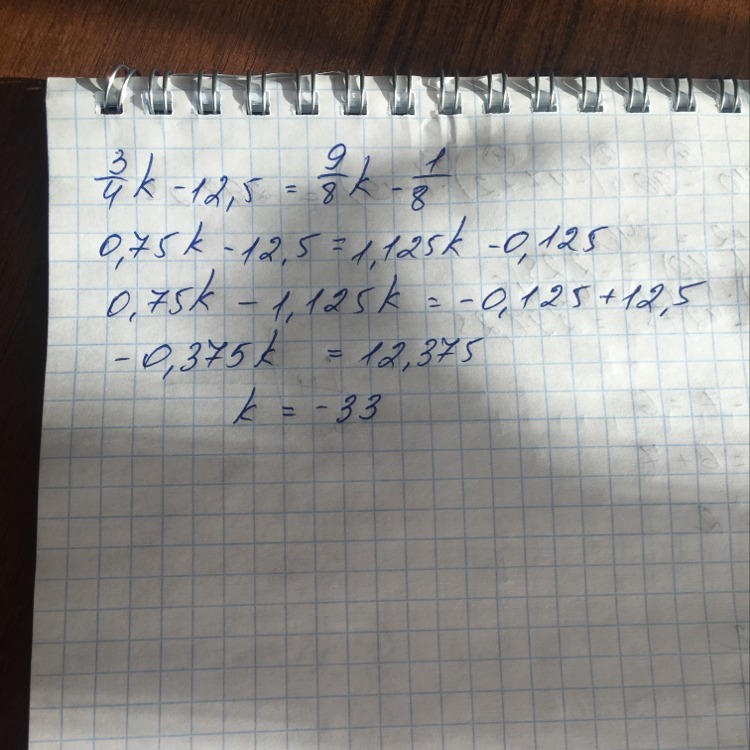 3/4 k - 12,5 = 9/8 k - 1/8
0,75k - 12,5 = 1,125k - 0,125
0,75k - 1,125k = -0,125 + 12,5
-0,375k = 12,375
k = -33